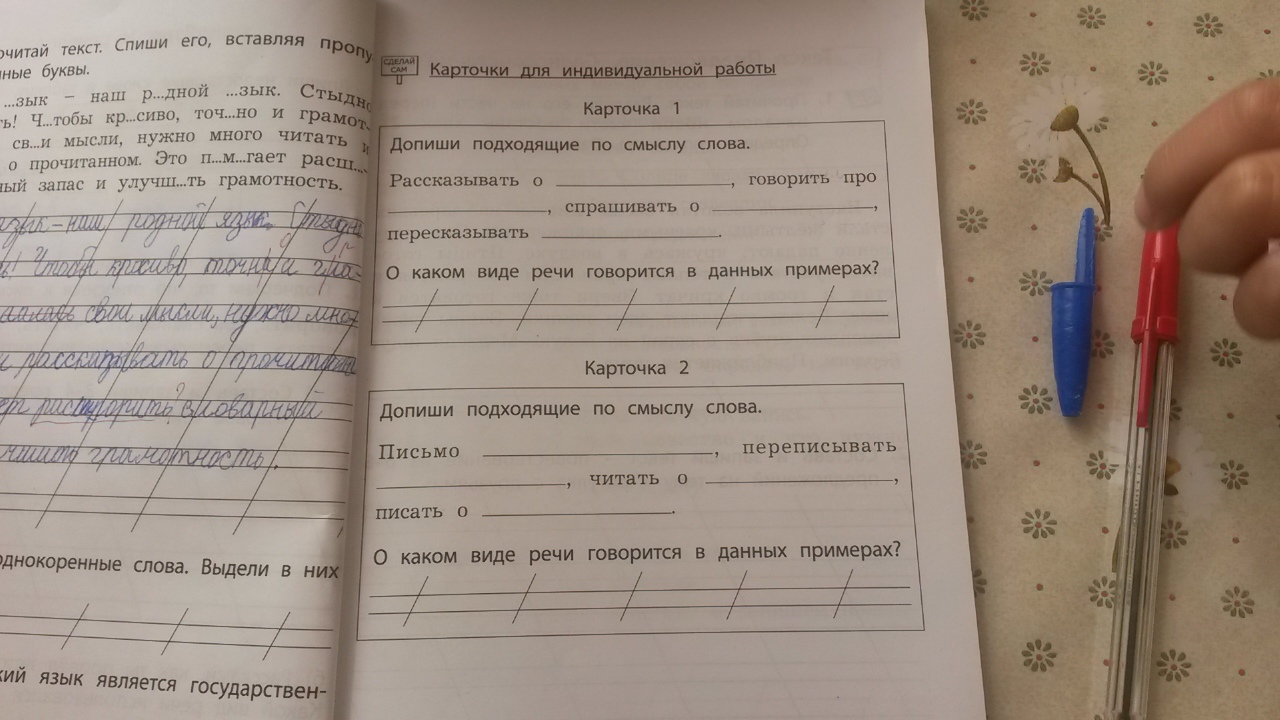 очитай текст. Спиши его, вставляя пропу
ные буквы.
...зык – наш р...дной ...зык. Стыдно
ть! Ч...тобы кр...сиво, точ...но и грамот-
св...и мысли, нужно много читать и
о прочитанном. Это п...м...гает расш...-
ный запас и улучш...ть грамотность.
язык – наш родной язык. Стыдно
ь! Чтобы красиво, точно и гра-
свои мысли, нужно мног
и рассказывать о прочитан
словарный
грамотность.
однокоренные слова. Выдели в них
кий язык является государствен-
СДЕЛАЙ
САМ
Карточки для индивидуальной работы
Карточка 1
Допиши подходящие по смыслу слова.
Рассказывать о ________, говорить про
________, спрашивать о ________,
пересказывать ________.
О каком виде речи говорится в данных примерах?
Карточка 2
Допиши подходящие по смыслу слова.
Письмо ________, переписывать
________, читать о ________,
писать о ________.
О каком виде речи говорится в данных примерах?